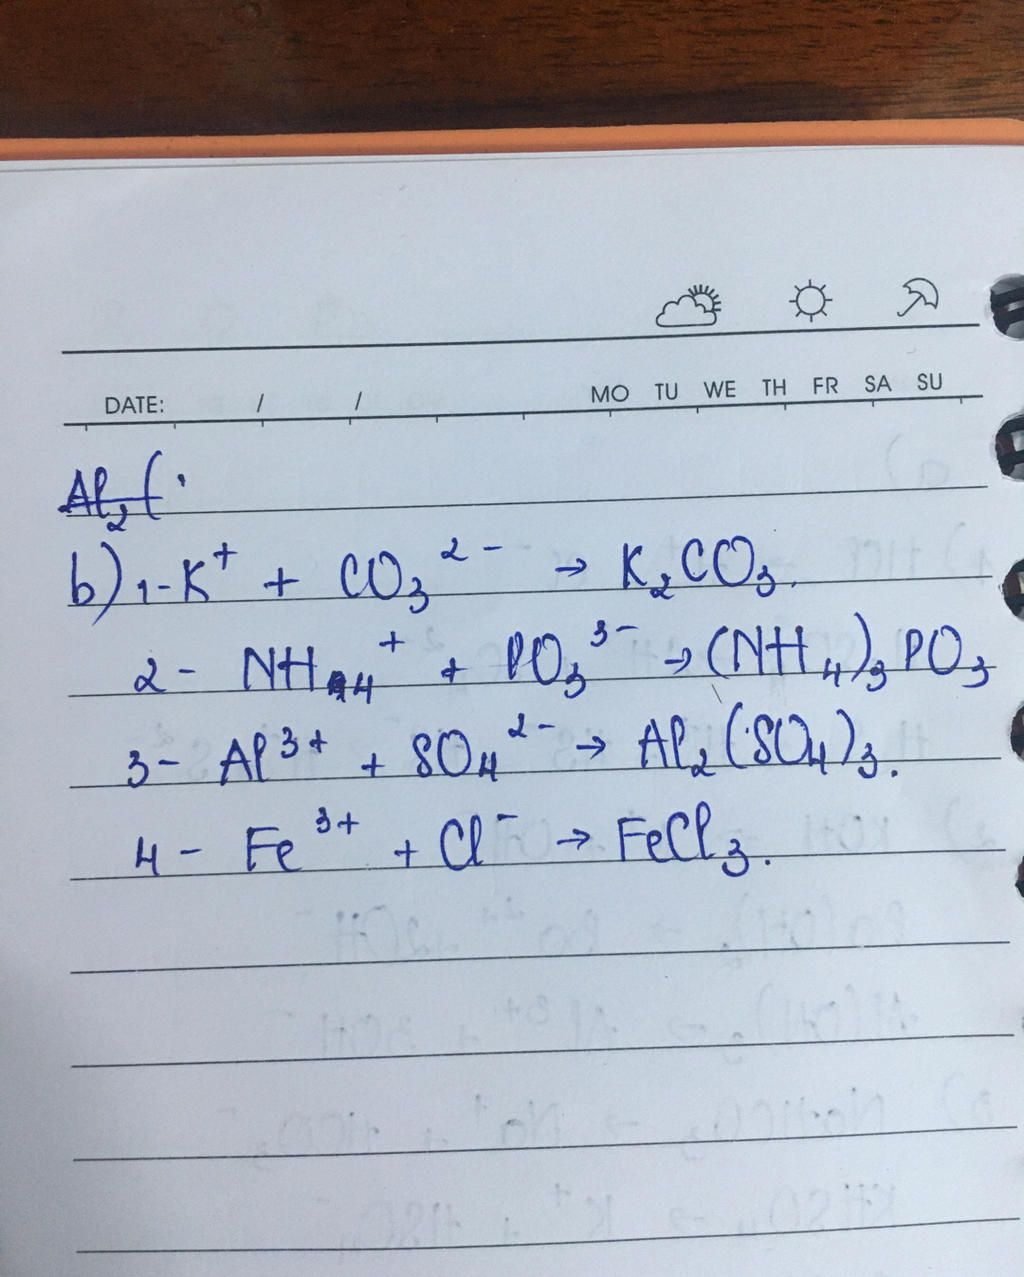 DATE: / / MO TU WE TH FR SA SU
Al₂(
b) 1- K⁺ + CO₃²⁻ → K₂CO₃.
2- NH₄⁺ + PO₃³⁻ → (NH₄)₃PO₃
3- Al³⁺ + SO₄²⁻ → Al₂(SO₄)₃.
4- Fe³⁺ + Cl⁻ → FeCl₃.